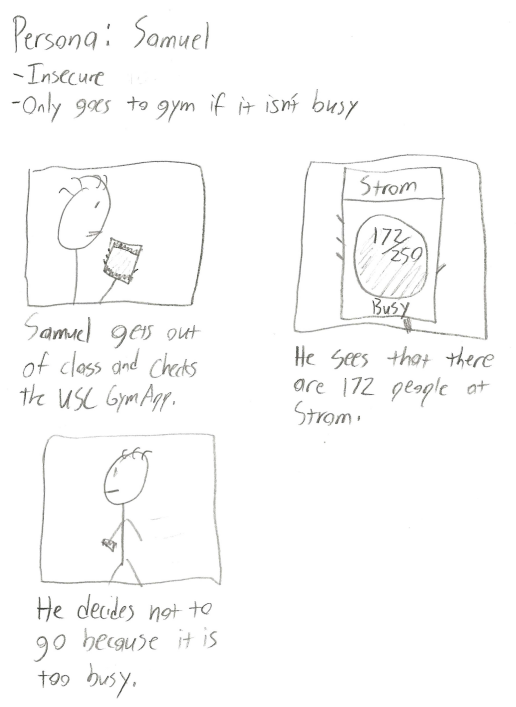 Persona: Samuel
-Insecure
-Only goes to gym if it isn't busy
Samuel gets out
of class and checks
the USC Gym App.
Strom
172/250
Busy
He sees that there
are 172 people at
Strom.
He decides not to
go because it is
too busy.